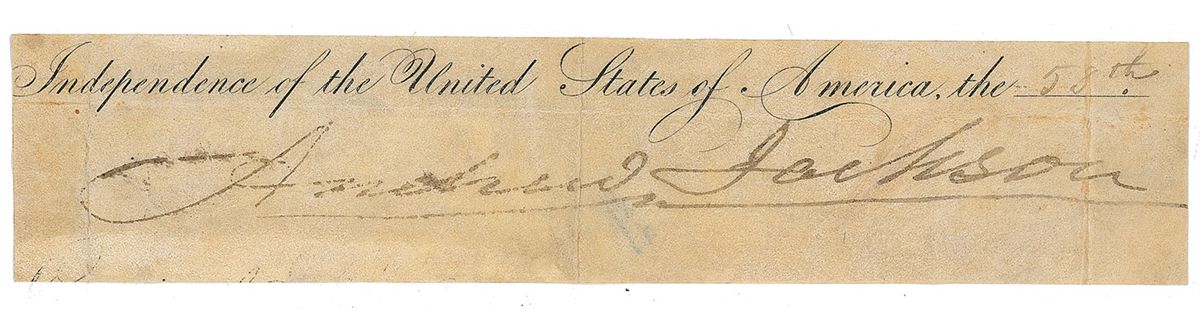 Independence of the United States of America, the 58th.
Andrew Jackson